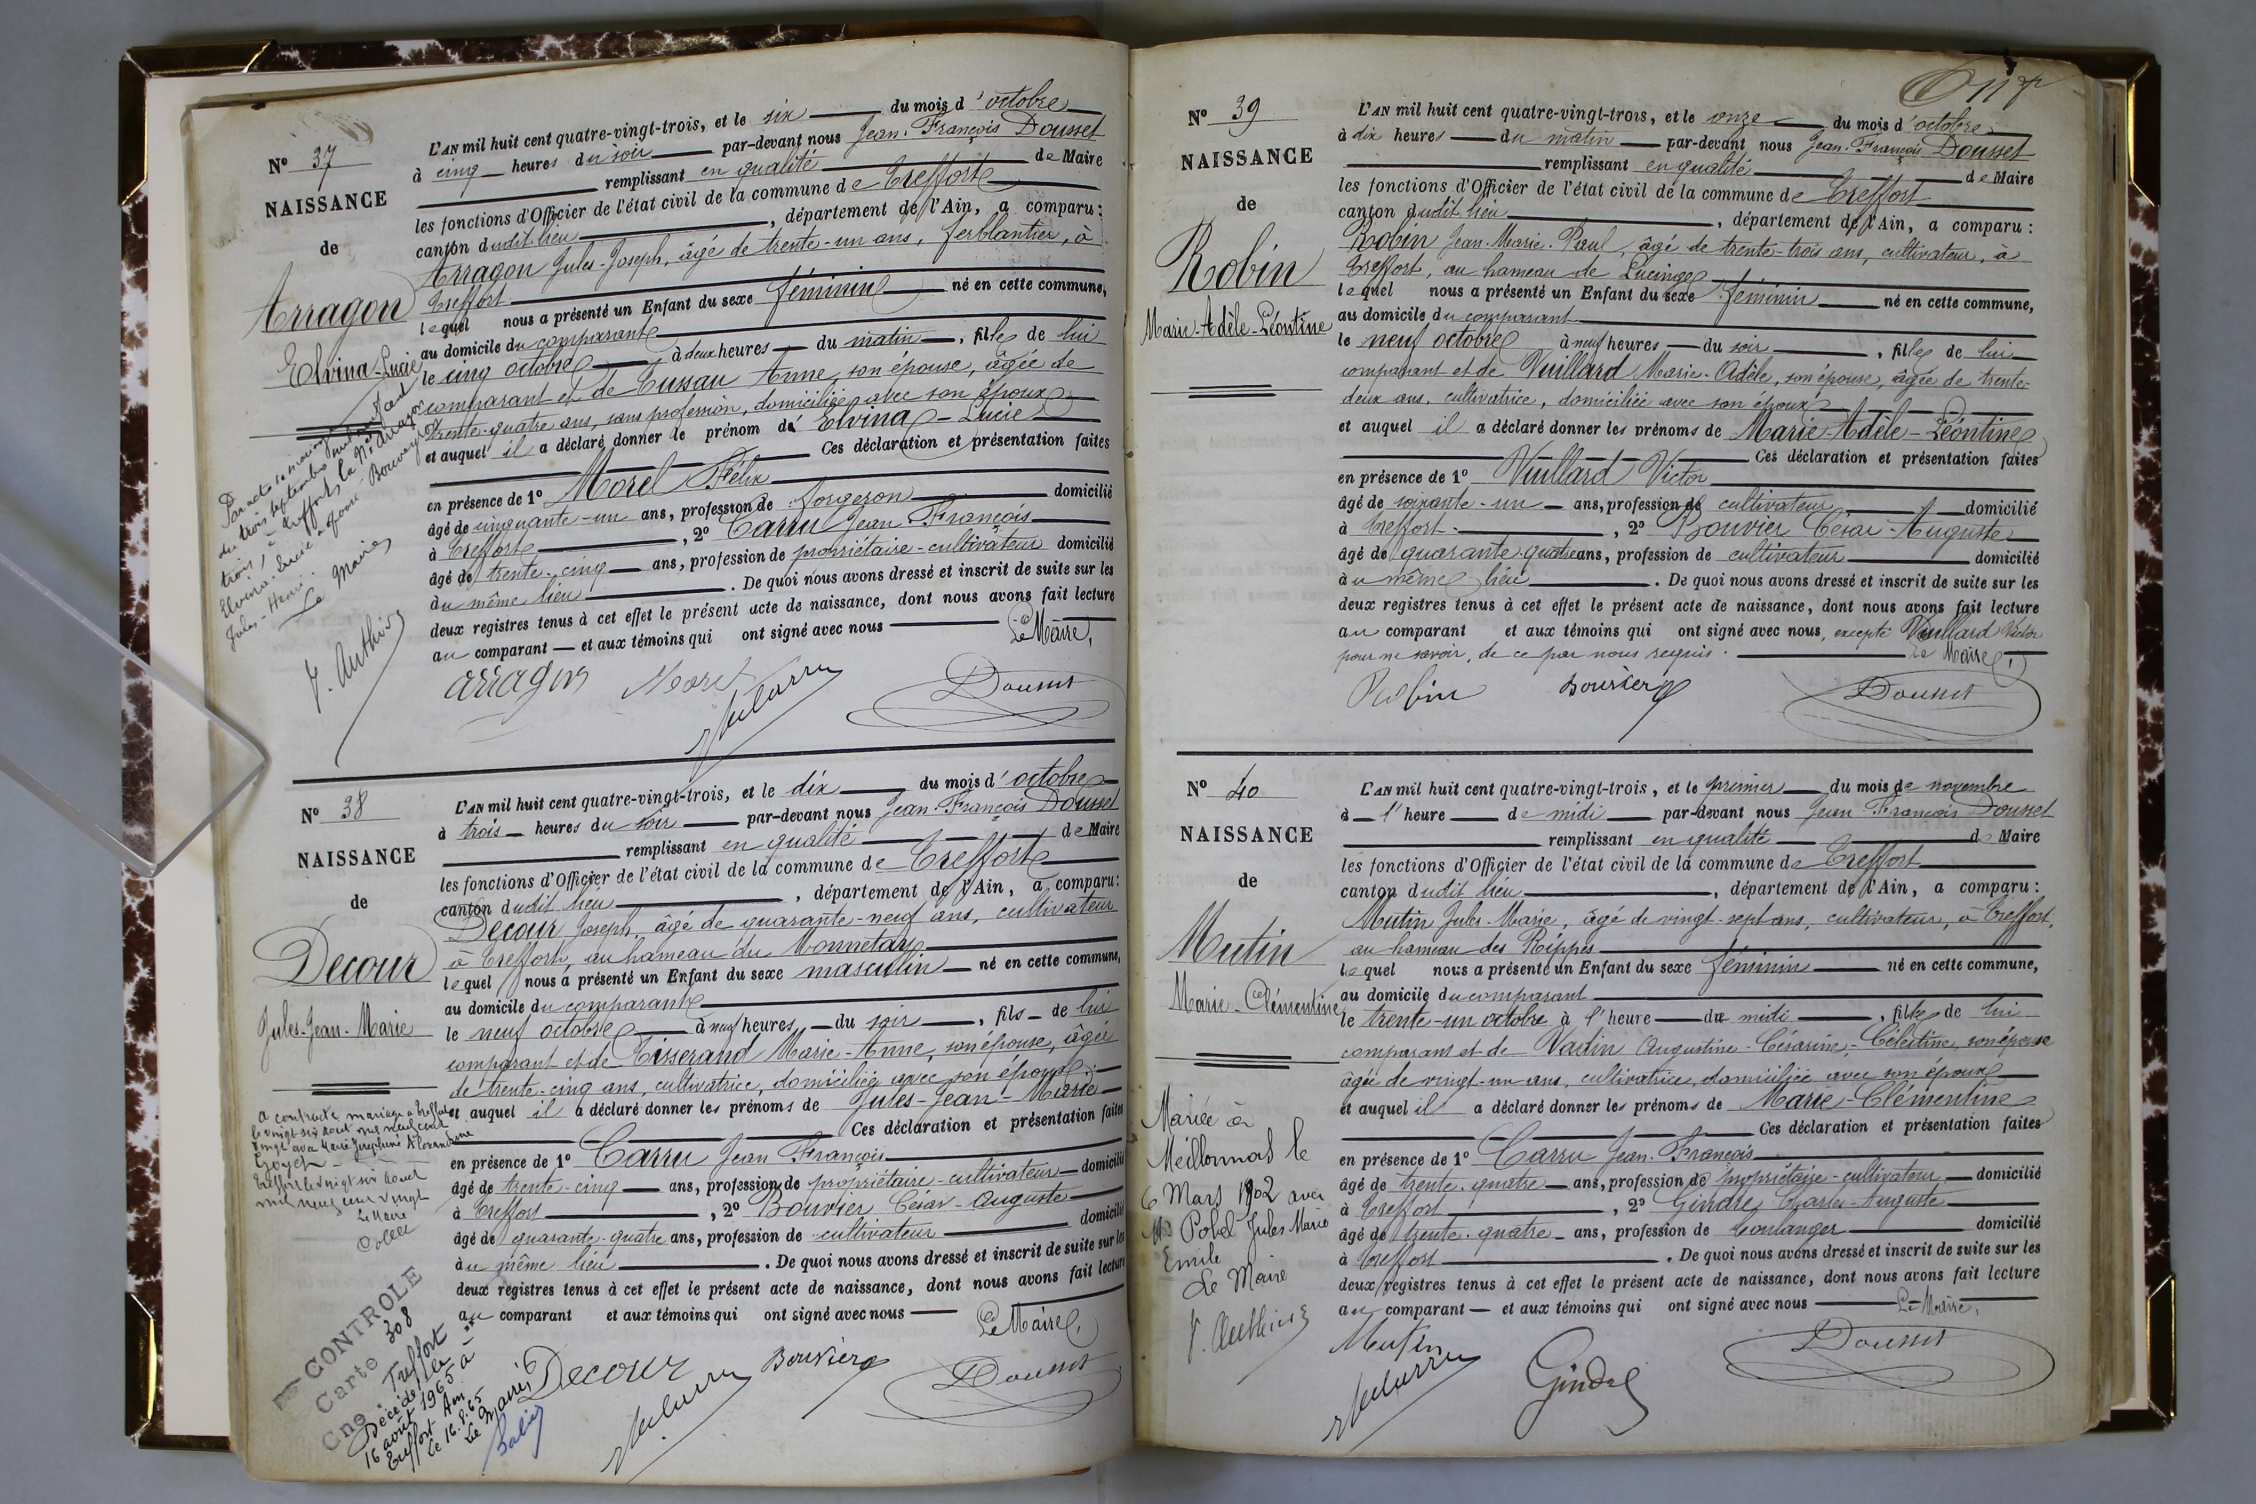 N° 37
NAISSANCE
de
Arragon
Elvina-Lucie
Par acte de mariage
du trois septembre mil neuf cent
trois, à Treffort, la Née Arragon
Elvina-Lucie a épousé Bouveyron
Jules-Henri.
Le Maire
F. Authier
L'AN mil huit cent quatre-vingt-trois, et le six du mois d'octobre
à cinq heures du soir par-devant nous Jean-François Dousset
remplissant en qualité de Maire
les fonctions d'Officier de l'état civil de la commune de Treffort
canton dudit lieu, département de l'Ain, a comparu:
Arragon Jules-Joseph, âgé de trente-un ans, ferblantier, à
Treffort
lequel nous a présenté un Enfant du sexe féminin né en cette commune,
au domicile du comparant
le cinq octobre, à deux heures du matin, fille de lui
comparant et de Cussau Anne, son épouse, âgée de
trente-quatre ans, sans profession, domiciliée avec son époux
et auquel il a déclaré donner le prénom de Elvina-Lucie
Ces déclaration et présentation faites
en présence de 1° Morel Félix
âgé de cinquante-un ans, profession de forgeron domicilié
à Treffort, 2° Carru Jean François
âgé de trente-cinq ans, profession de propriétaire-cultivateur domicilié
au même lieu. De quoi nous avons dressé et inscrit de suite sur les
deux registres tenus à cet effet le présent acte de naissance, dont nous avons fait lecture
au comparant et aux témoins qui ont signé avec nous
Le Maire,
arragon Morel Carru Dousset
N° 38
NAISSANCE
de
Decour
Jules-Jean-Marie
A contracté mariage à Treffort
le vingt six août mil neuf cent
vingt avec Marie Joséphine Alexandrine
Goyet
Treffort le vingt six août
mil neuf cent vingt
Le Maire
CONTROLE
Carte 308
Cne: Treffort
Décédé le
16 août 1965 à
Treffort Ain
Le 16.8.65
Le Maire
L'AN mil huit cent quatre-vingt-trois, et le dix du mois d'octobre
à trois heures du soir par-devant nous Jean-François Dousset
remplissant en qualité de Maire
les fonctions d'Officier de l'état civil de la commune de Treffort
canton dudit lieu, département de l'Ain, a comparu:
Decour Joseph, âgé de quarante-neuf ans, cultivateur
à Treffort, au hameau du Monnetay
lequel nous a présenté un Enfant du sexe masculin né en cette commune,
au domicile du comparant
le neuf octobre à neuf heures du soir, fils de lui
comparant et de Tisserand Marie-Anne, son épouse, âgée
de trente-cinq ans, cultivatrice, domiciliée avec son époux
et auquel il a déclaré donner les prénoms de Jules-Jean-Marie
Ces déclaration et présentation faites
en présence de 1° Carru Jean François
âgé de trente-cinq ans, profession de propriétaire-cultivateur domicilié
à Treffort, 2° Bouvier César-Auguste
âgé de quarante-quatre ans, profession de cultivateur domicilié
au même lieu. De quoi nous avons dressé et inscrit de suite sur les
deux registres tenus à cet effet le présent acte de naissance, dont nous avons fait lecture
au comparant et aux témoins qui ont signé avec nous
Le Maire,
Decour Carru Bouvier Dousset
N° 39
NAISSANCE
de
Robin
Marie-Adèle-Léontine
L'AN mil huit cent quatre-vingt-trois, et le onze du mois d'octobre
à dix heures du matin par-devant nous Jean-François Dousset
remplissant en qualité de Maire
les fonctions d'Officier de l'état civil de la commune de Treffort
canton dudit lieu, département de l'Ain, a comparu:
Robin Jean-Marie-Paul, âgé de trente-trois ans, cultivateur, à
Treffort, au hameau de Lucinges
lequel nous a présenté un Enfant du sexe féminin né en cette commune,
au domicile du comparant
le neuf octobre à neuf heures du soir, fille de lui
comparant et de Vuillard Marie-Adèle, son épouse, âgée de trente-
deux ans, cultivatrice, domiciliée avec son époux
et auquel il a déclaré donner les prénoms de Marie-Adèle-Léontine
Ces déclaration et présentation faites
en présence de 1° Vuillard Victor
âgé de soixante-un ans, profession de cultivateur domicilié
à Treffort, 2° Bouvier César-Auguste
âgé de quarante-quatre ans, profession de cultivateur domicilié
au même lieu. De quoi nous avons dressé et inscrit de suite sur les
deux registres tenus à cet effet le présent acte de naissance, dont nous avons fait lecture
au comparant et aux témoins qui ont signé avec nous, excepté Vuillard Victor
pour ne savoir, de ce par nous requis. Le Maire,
Robin Bouvier Dousset
N° 40
NAISSANCE
de
Mutin
Marie-Clémentine
Mariée à
Meillonnas le
6 Mars 1902 avec
Mr Pobel Jules Marie
Emile
Le Maire
F. Authier
L'AN mil huit cent quatre-vingt-trois, et le premier du mois de novembre
à l'heure de midi par-devant nous Jean François Dousset
remplissant en qualité de Maire
les fonctions d'Officier de l'état civil de la commune de Treffort
canton dudit lieu, département de l'Ain, a comparu:
Mutin Jules-Marie, âgé de vingt-sept ans, cultivateur, à Treffort,
au hameau des Rippes
lequel nous a présenté un Enfant du sexe féminin né en cette commune,
au domicile du comparant
le trente-un octobre à l'heure de midi, fille de lui
comparant et de Vadin Augustine-Césarine-Célestine, son épouse
âgée de vingt-un ans, cultivatrice, domiciliée avec son époux
et auquel il a déclaré donner les prénoms de Marie-Clémentine
Ces déclaration et présentation faites
en présence de 1° Carru Jean-François
âgé de trente-quatre ans, profession de propriétaire-cultivateur domicilié
à Treffort, 2° Gindre Charles-Auguste
âgé de trente-quatre ans, profession de boulanger domicilié
à Treffort. De quoi nous avons dressé et inscrit de suite sur les
deux registres tenus à cet effet le présent acte de naissance, dont nous avons fait lecture
au comparant et aux témoins qui ont signé avec nous Le Maire,
Mutin Carru Gindre Dousset